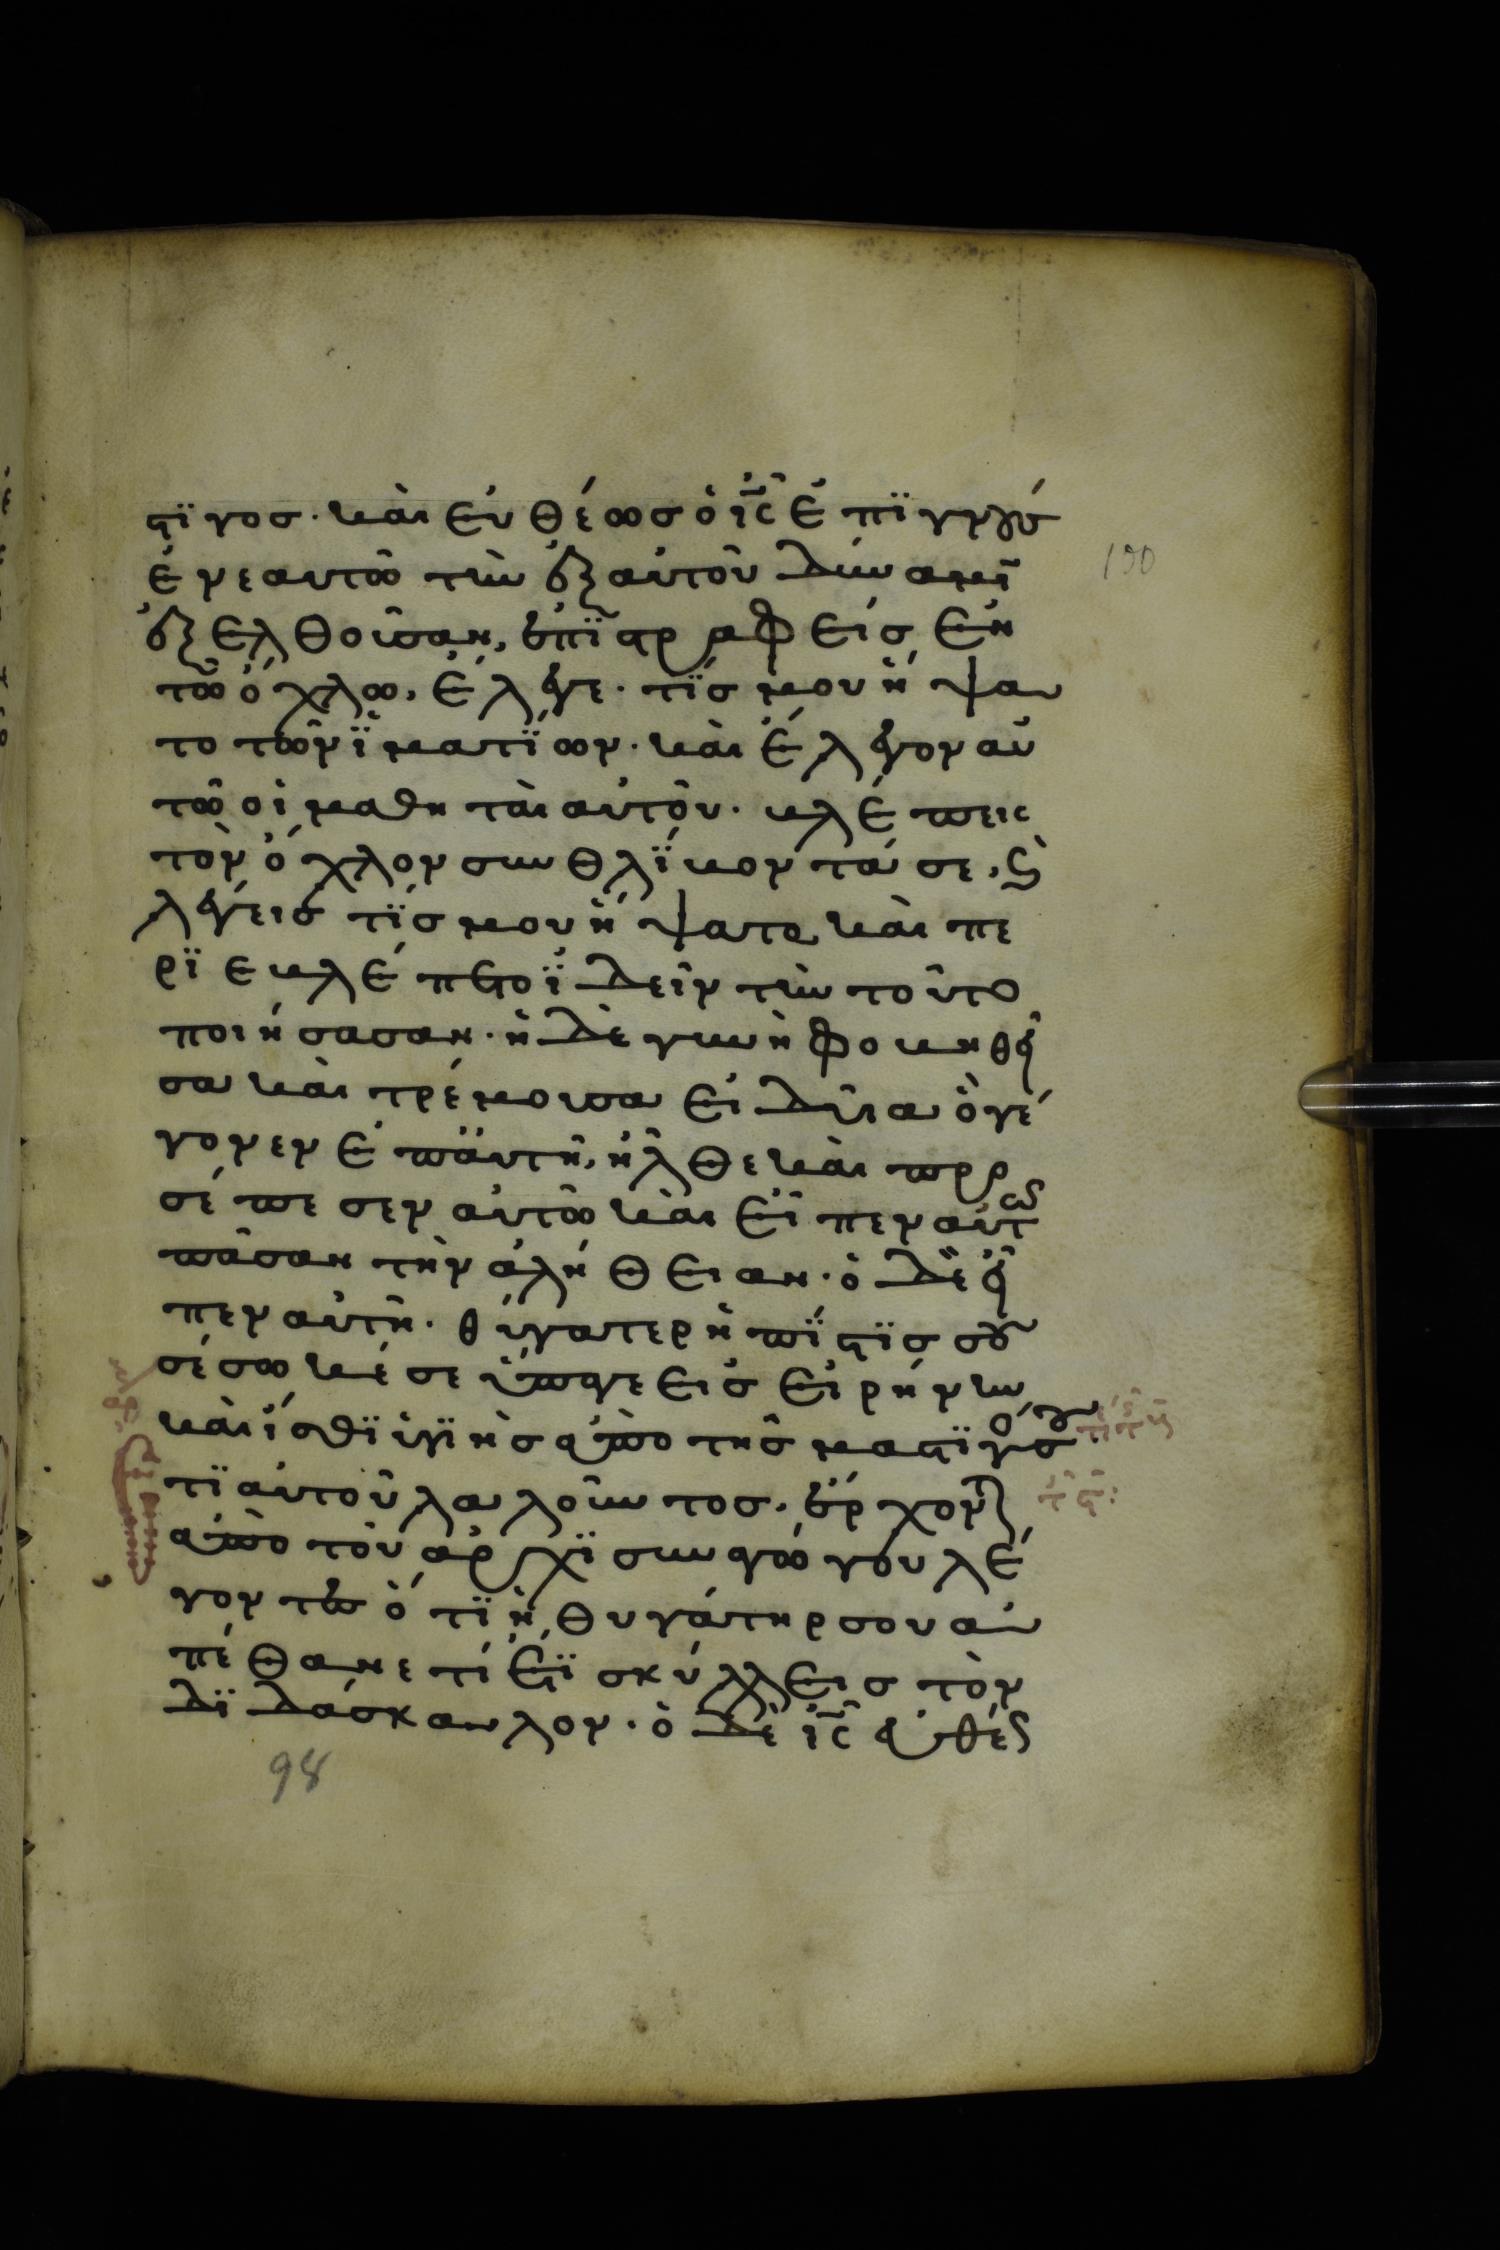 στϊγοσ· καὶ εὐθέωσ ὁ ι̅ς̅ ἐπϊγνοὺσ
ἐν εαυτῶ τὴν ἐξ αὐτοῦ δύναμϊ
ἐξελθοῦσαν, ἐπϊστραφεὶσ ἐν
τῶ ὄχλω, ἔλεγε· τΐσ μου ἥψα
το τῶν ϊματΐων· καὶ ἔλεγον αὐ
τῶ οἱ μαθηταὶ αὐτοῦ· βλέπεις
τὸν ὄχλον συνθλΐβοντά σε, ϗ
λέγεισ τΐσ μου ἥψατο καὶ πε
ρϊεβλέπετο ϊδεῖν τὴν τοῦτο
ποιήσασαν· ἡ δὲ γυνὴ φοβηθεῖ
σα καὶ τρέμουσα εἰδυῖα ὃ γέ
γονεν ἐπ αὐτῆ, ἦλθε καὶ προ
σέπεσεν αὐτῶ καὶ εἶπεν αὐτῶ
πᾶσαν τὴν ἀλήθειαν· ὁ δὲ εἶ
πεν αὐτῆ· θύγατερ ἡ πΐστϊσ σου
σέσωκέ σε ὕπαγε εισ εἰρήνην
καὶ ἴσθϊ ὑγϊὴσ ἀπὸ τῆσ μαστϊγόσ σου
τϊ αὐτοῦ λαλοῦντοσ, ἔρχονται
ἀπὸ τοῦ ἀρχϊσυναγώγου λέ
γοντεσ ὅτϊ ἡ θυγάτηρ σου ἀ
πέθανε τί ἔτϊ σκύλλεισ τὸν
δϊδάσκαλον· ὁ δὲ ι̅ς̅ εὐθέως
190
98